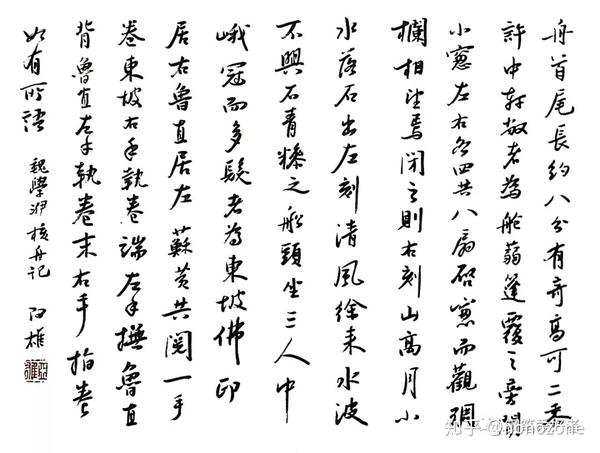 舟首尾長約八分有奇高可二黍
許中軒敞者為舱蒻篷覆之旁開
小窓左右各四共八扇啓窓而觀雕
欄相望焉閉之則右刻山高月小
水落石出左刻清風徐来水波
不興石青糝之船頭坐三人中
峨冠而多髯者為東坡佛印
居右魯直居左蘇黄共閱一手
卷東坡右手執卷端左手撫魯直
背魯直左手執卷末右手指卷
如有所語 魏學洢核舟记 雄
知乎